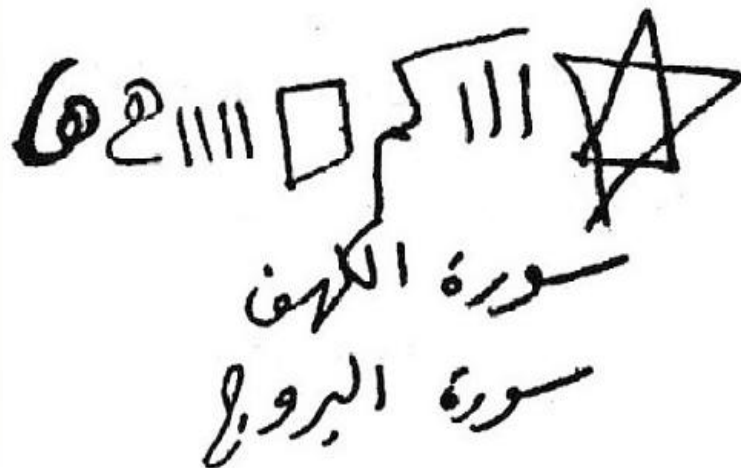 سورة الكهف
سورة البروج